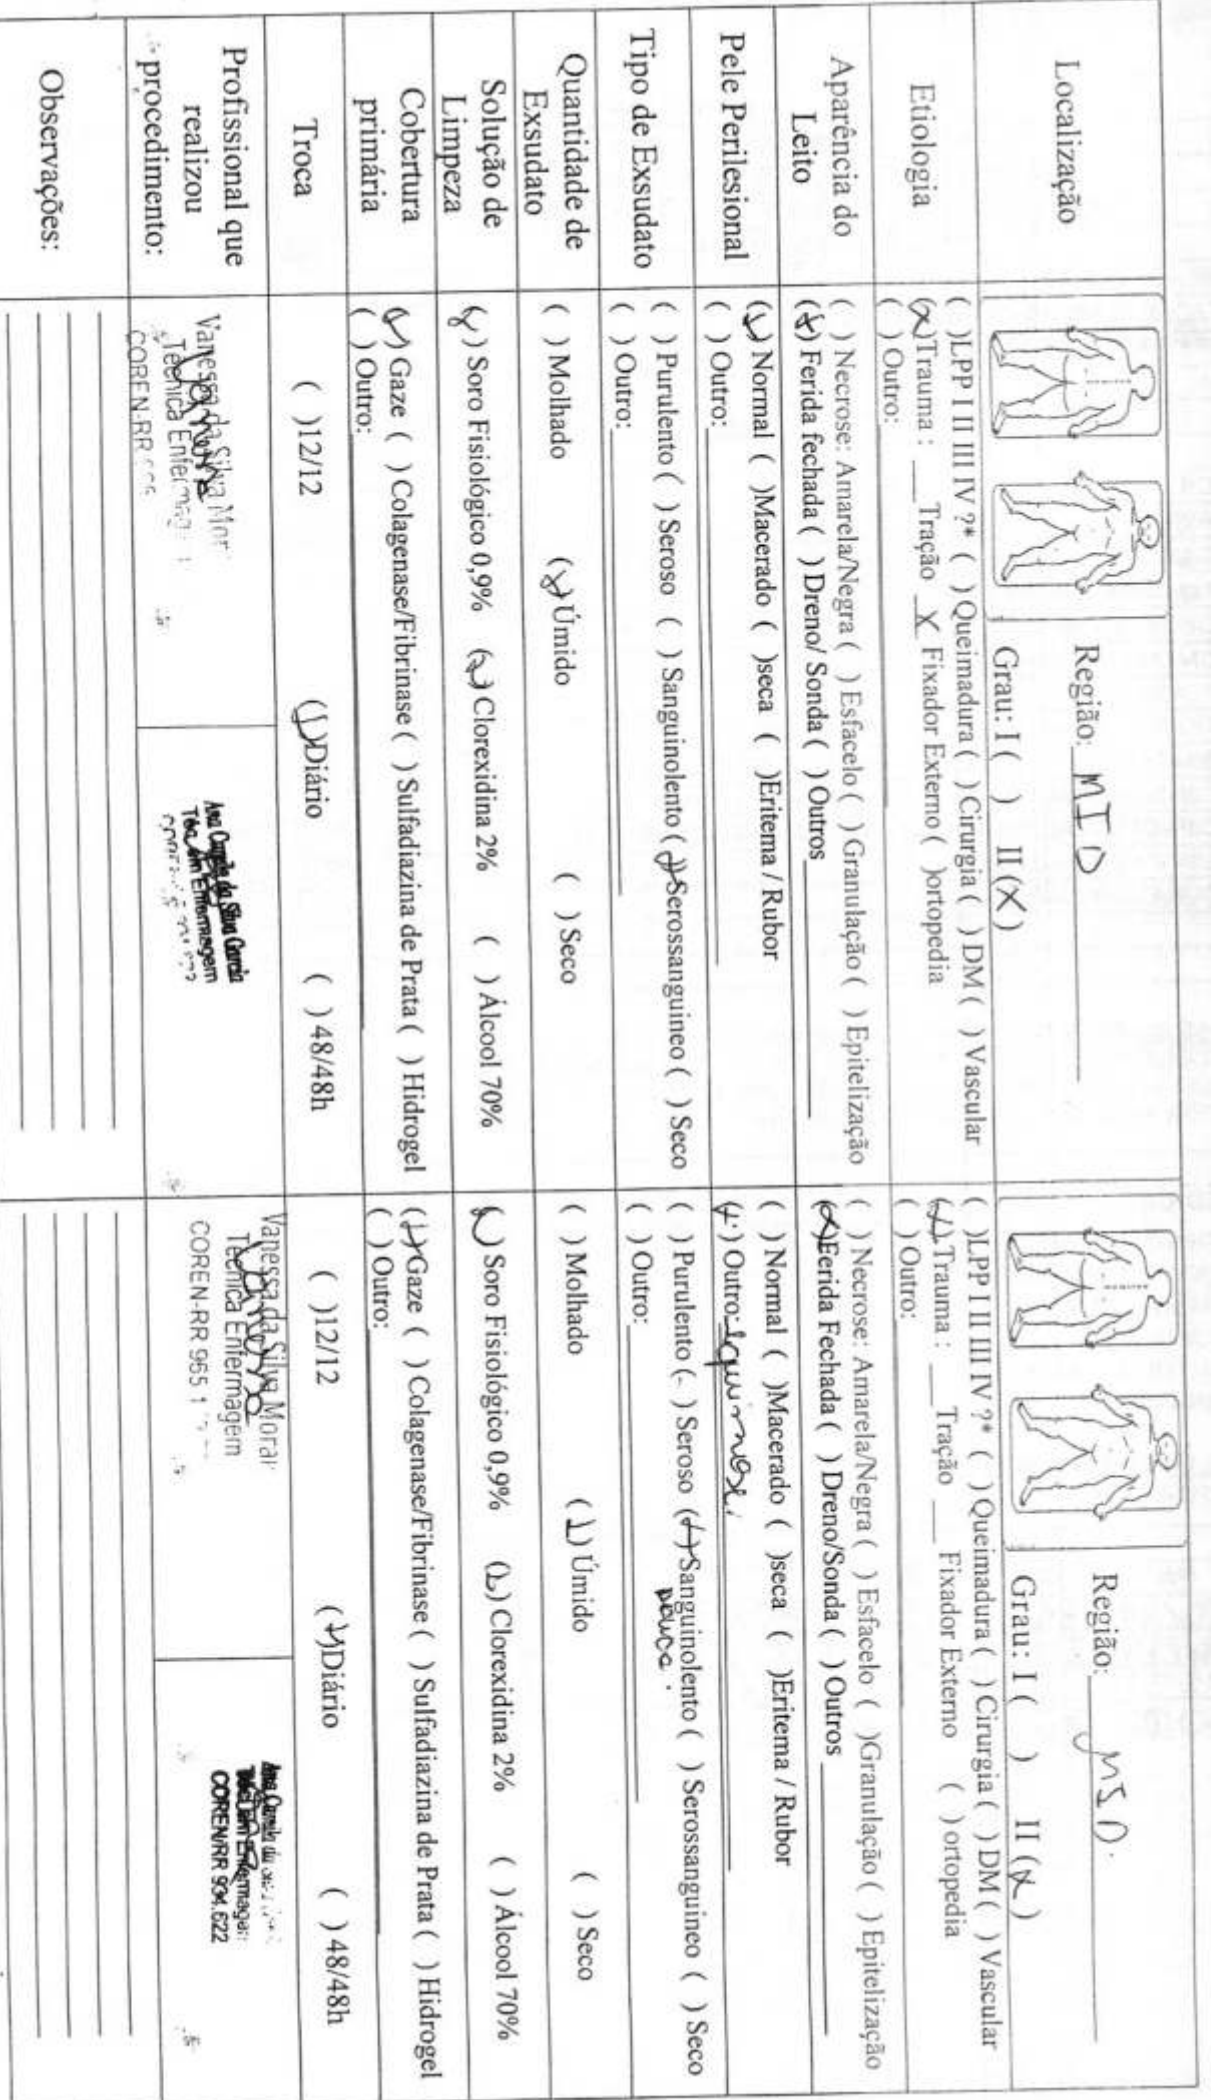 Localização
Região: MID
Grau: I ( ) II (X)
Região: MSD.
Grau: I ( ) II (X)
Etiologia
( )LPP I II III IV ?* ( ) Queimadura ( ) Cirurgia ( ) DM ( ) Vascular
(x)Trauma : ___ Tração _X_ Fixador Externo ( )ortopedia
( ) Outro:
( )LPP I II III IV ?* ( ) Queimadura ( ) Cirurgia ( ) DM ( ) Vascular
(x)Trauma : ___ Tração ___ Fixador Externo ( ) ortopedia
( ) Outro:
Aparência do
Leito
( ) Necrose: Amarela/Negra ( ) Esfacelo ( ) Granulação ( ) Epitelização
(x) Ferida fechada ( ) Dreno/ Sonda ( ) Outros
( ) Necrose: Amarela/Negra ( ) Esfacelo ( )Granulação ( ) Epitelização
(x)Ferida Fechada ( ) Dreno/Sonda ( ) Outros
Pele Perilesional
(x) Normal ( )Macerado ( )seca ( )Eritema / Rubor
( ) Outro:
( ) Normal ( )Macerado ( )seca ( )Eritema / Rubor
(x) Outro:
Tipo de Exsudato
( ) Purulento ( ) Seroso ( ) Sanguinolento (x)Serossanguineo ( ) Seco
( ) Outro:
( ) Purulento ( ) Seroso (x)Sanguinolento ( ) Serossanguineo ( ) Seco
pouco.
( ) Outro:
Quantidade de
Exsudato
( ) Molhado (x)Úmido ( ) Seco
( ) Molhado (x) Úmido ( ) Seco
Solução de
Limpeza
(x) Soro Fisiológico 0,9% (x)Clorexidina 2% ( ) Álcool 70%
(x) Soro Fisiológico 0,9% (x) Clorexidina 2% ( ) Álcool 70%
Cobertura
primária
(x) Gaze ( ) Colagenase/Fibrinase ( ) Sulfadiazina de Prata ( ) Hidrogel
( ) Outro:
(x)Gaze ( ) Colagenase/Fibrinase ( ) Sulfadiazina de Prata ( ) Hidrogel
( ) Outro:
Troca
( )12/12 (x)Diário ( ) 48/48h
( )12/12 (x)Diário ( ) 48/48h
Profissional que
realizou
procedimento:
Vanessa da Silva Mor
Técnica Enfermag
COREN-RR
Ana Camila da Silva Garcia
Téc. em Enfermagem
Vanessa da Silva Morai
Técnica Enfermagem
COREN-RR 955 1
Ana Camila da
Téc. em Enfermagem
COREN/RR 934.622
Observações: